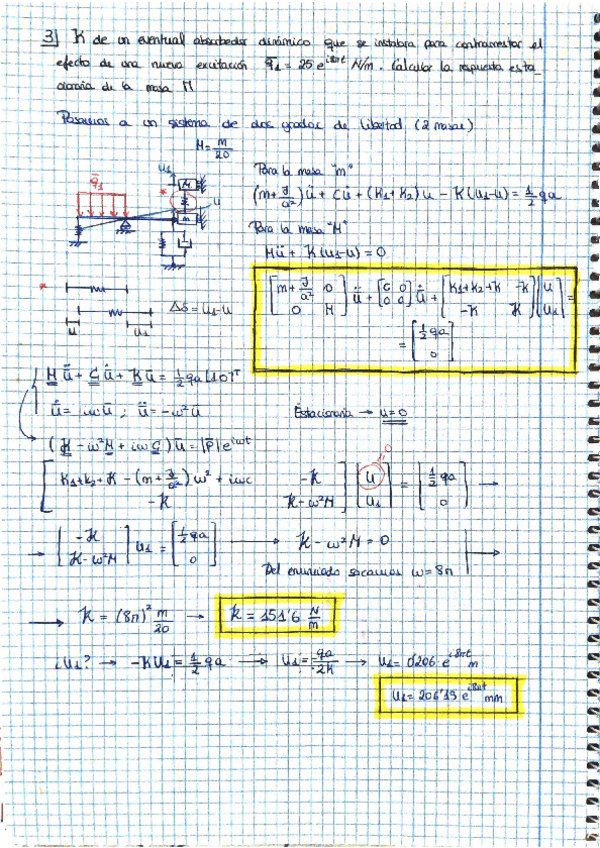 3) K de un eventual absorbedor dinámico que se instalara para contrarrestar el
efecto de una nueva excitación q̄1 = 25 e^{i8πt} N/m. Calcular la respuesta esta_
cionaria de la masa M
Pasamos a un sistema de dos grados de libertad (2 masas)
M = m/20
Para la masa "m"
(m + J/a²) ü + Cu̇ + (K1+K2) u - K(u1-u) = 1/2 qa
Para la masa "M"
Mü + K(u1-u) = 0
q̄1
u1
M
u
m
[m + J/a² 0; 0 M] ü + [C 0; 0 0] u̇ + [K1+K2+K -K; -K K] [u; u1] =
= [1/2 qa; 0]
Δδ = u1-u
u u1
M ü + C u̇ + K ū = 1/2 qa [1 0]ᵀ
u̇ = iωū ; ü = -ω²ū
Estacionaria → u=0
(K - ω²M + iωC) ū = |P| e^{iωt}
[K1+K2+K - (m + J/a²) ω² + iωc -K; -K K-ω²M] [u; u1] = [1/2 qa; 0] →
=0
→ [-K; K-ω²M] u1 = [1/2 qa; 0] → K - ω²M = 0
Del enunciado sacamos ω = 8π
→ K = (8π)² m/20 → K = 151'6 N/m
¿u1? → -Ku1 = 1/2 qa → u1 = -qa/2K → u1 = 0'206 e^{i8πt} m
u1 = 206'13 e^{i8πt} mm